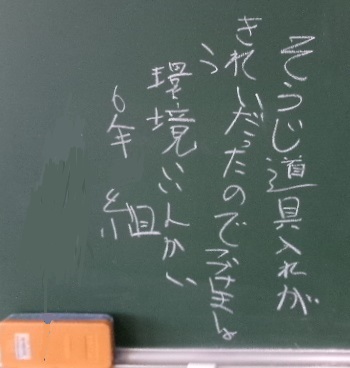 そうじ道具入れが
きれいだったのでござましょ
う
環境いいんかい
6年 組